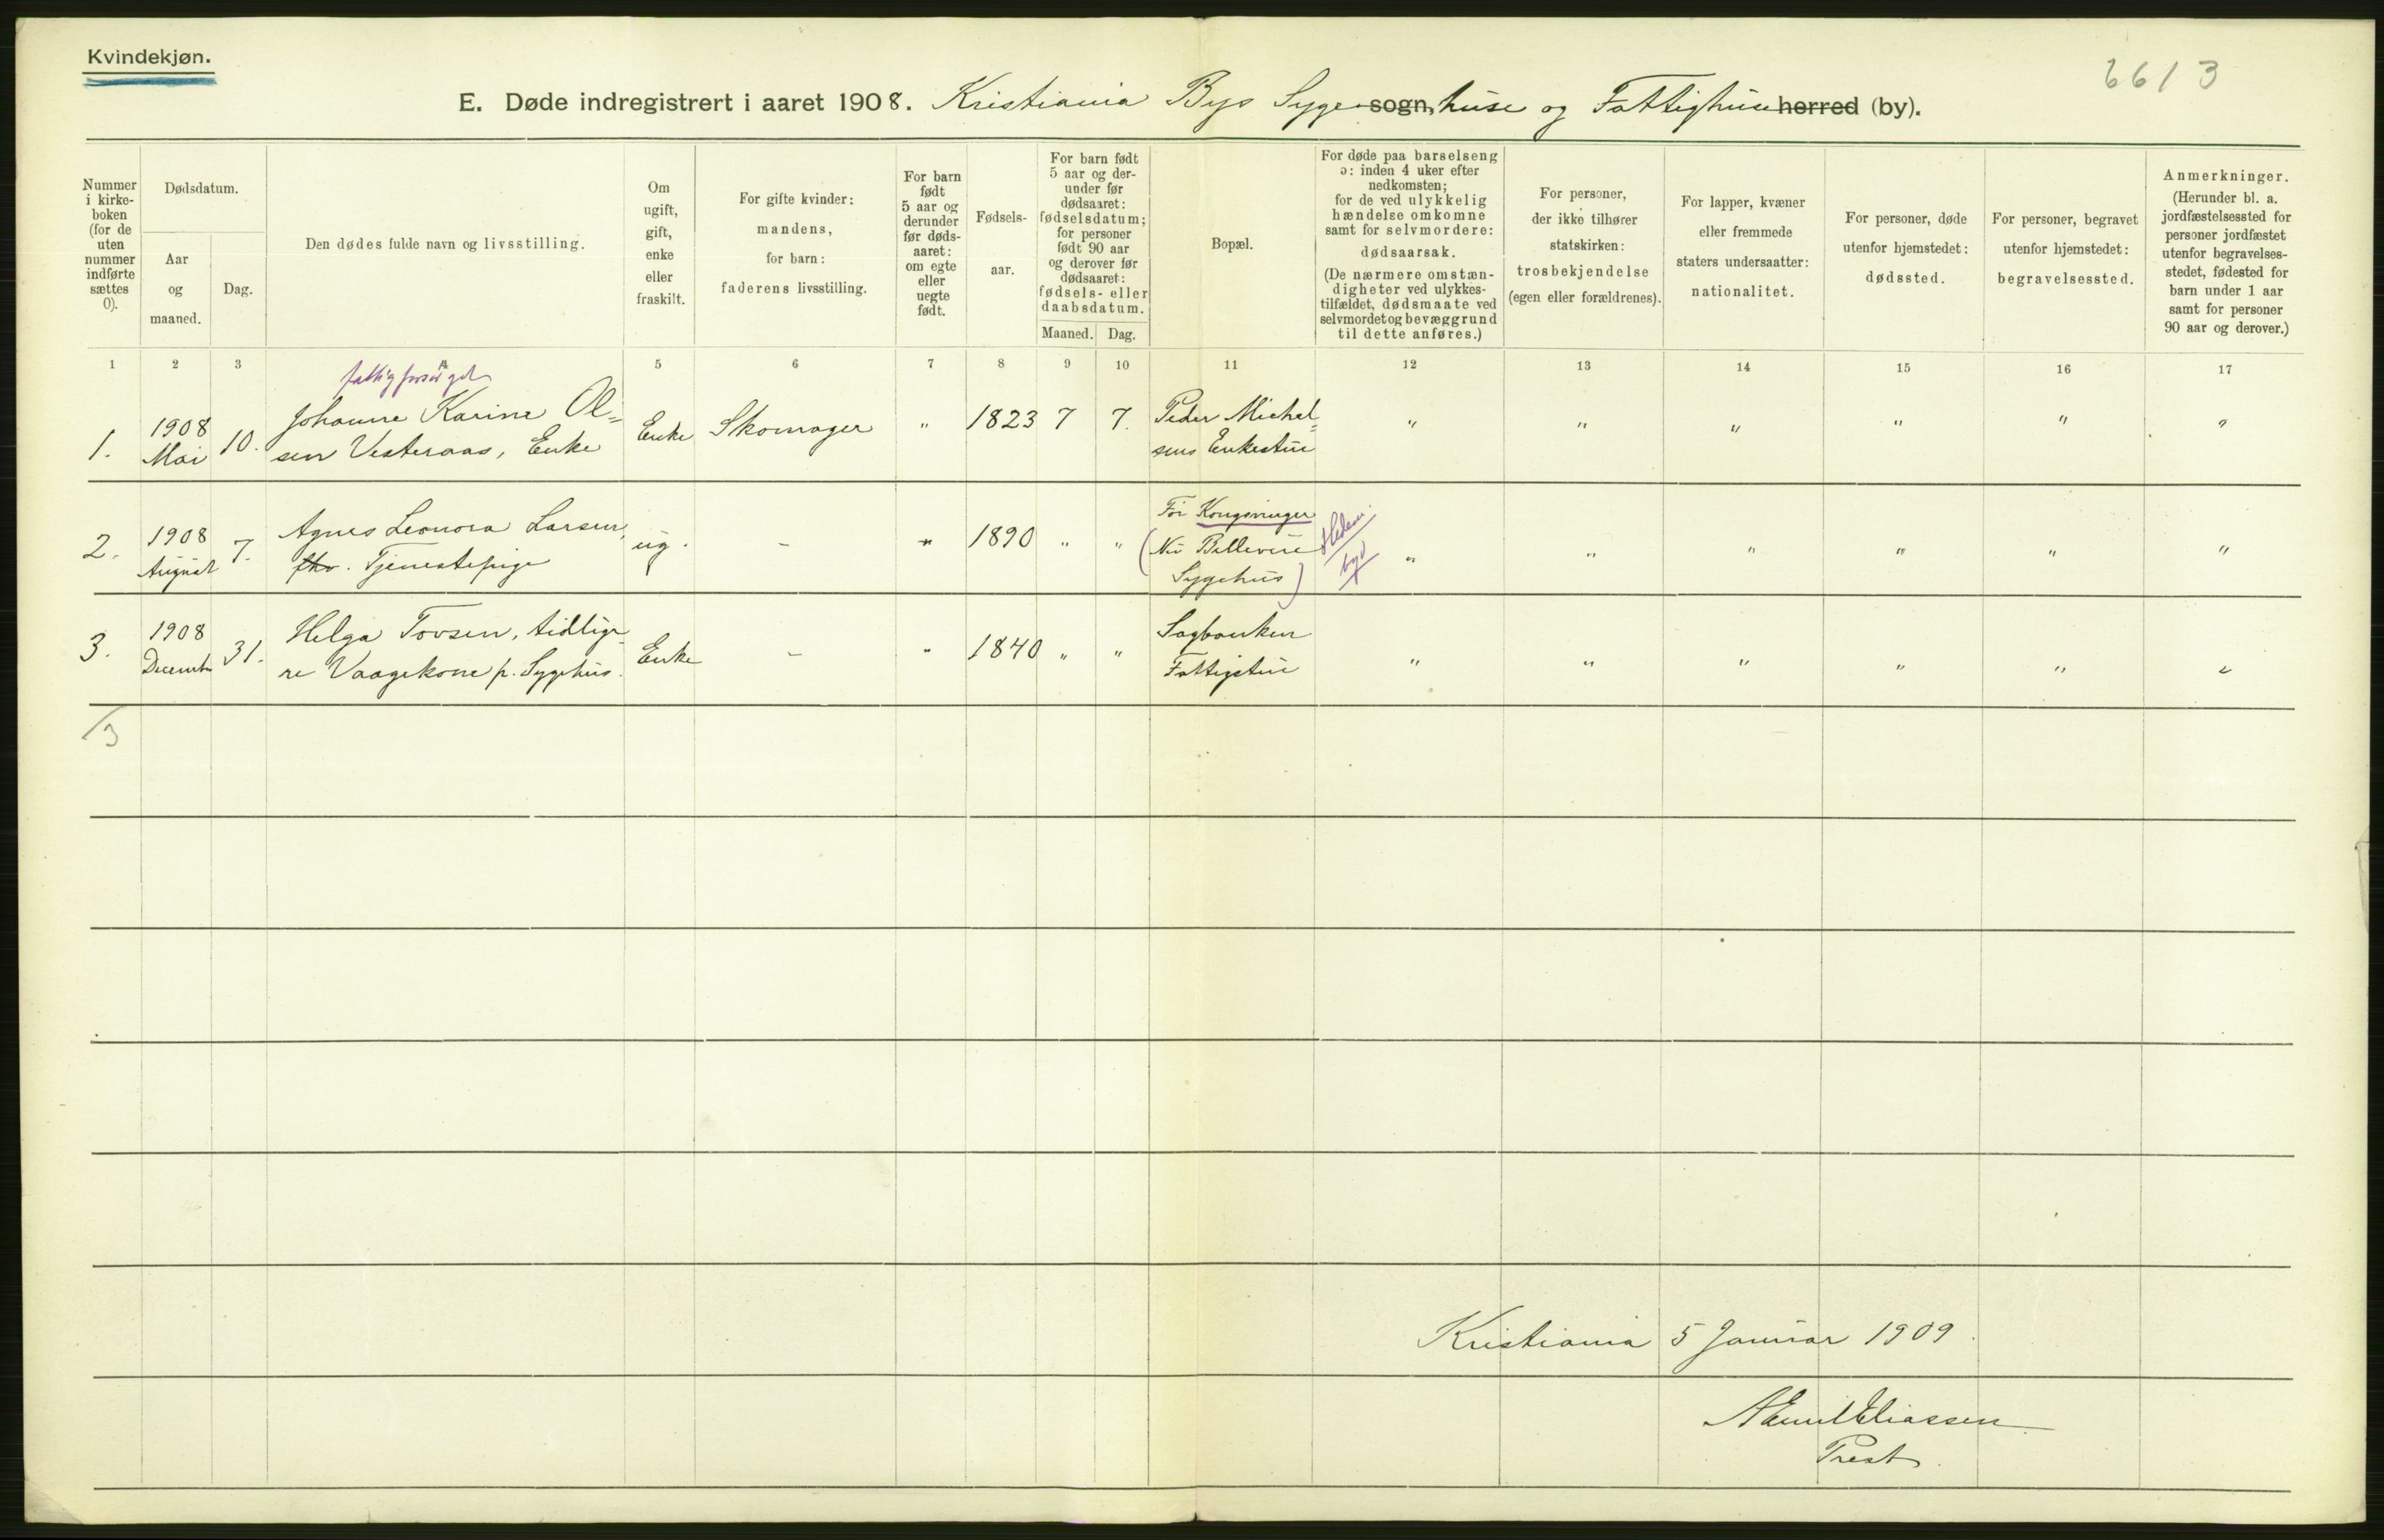 Kvindekjøn.
6613
E. Døde indregistrert i aaret 1908. Kristiania Bys Syge sogn, huse og Fattighuse herred (by).
Nummer
i kirke-
boken
(for de
uten
nummer
indførte
sættes
0).
Dødsdatum.
Aar
og
maaned.
Dag.
Den dødes fulde navn og livsstilling.
Om
ugift,
gift,
enke
eller
fraskilt.
For gifte kvinder:
mandens,
for barn:
faderens livsstilling.
For barn
født
5 aar og
derunder
før døds-
aaret:
om egte
eller
uegte
født.
Fødsels-
aar.
For barn født
5 aar og der-
under før
dødsaaret:
fødselsdatum;
for personer
født 90 aar
og derover før
dødsaaret:
fødsels- eller
daabsdatum.
Maaned. Dag.
Bopæl.
For døde paa barselseng
ɔ: inden 4 uker efter
nedkomsten;
for de ved ulykkelig
hændelse omkomne
samt for selvmordere:
dødsaarsak.
(De nærmere omstæn-
digheter ved ulykkes-
tilfældet, dødsmaate ved
selvmordet og bevæggrund
til dette anføres.)
For personer,
der ikke tilhører
statskirken:
trosbekjendelse
(egen eller forældrenes).
For lapper, kvæner
eller fremmede
staters undersaatter:
nationalitet.
For personer, døde
utenfor hjemstedet:
dødssted.
For personer, begravet
utenfor hjemstedet:
begravelsessted.
Anmerkninger.
(Herunder bl. a.
jordfæstelsessted for
personer jordfæstet
utenfor begravelses-
stedet, fødested for
barn under 1 aar
samt for personer
90 aar og derover.)
1 2 3 5 6 7 8 9 10 11 12 13 14 15 16 17
fattigforsørget
1. 1908 Mai 10. Johanne Karine Ol=
sen Vesteraas, Enke Enke Skomager " 1823 7 7. Peder Michel=
sens Enkestue " " " " " "
2. 1908 August 7. Agnes Leonora Larsen,
fhv. Tjenestepige ug. - " 1890 " " For Kongsvinger
(Nu Bellevue
Sygehus) Hedem.
by " " " " " "
3. 1908 December 31. Helga Tovsen, tidlige-
re Vaagekone p. Sygehus. Enke - " 1840 " " Sagbanken
Fattigstue " " " " " "
3
Kristiania 5 Januar 1909.
A Emil Eliassen
Prest.